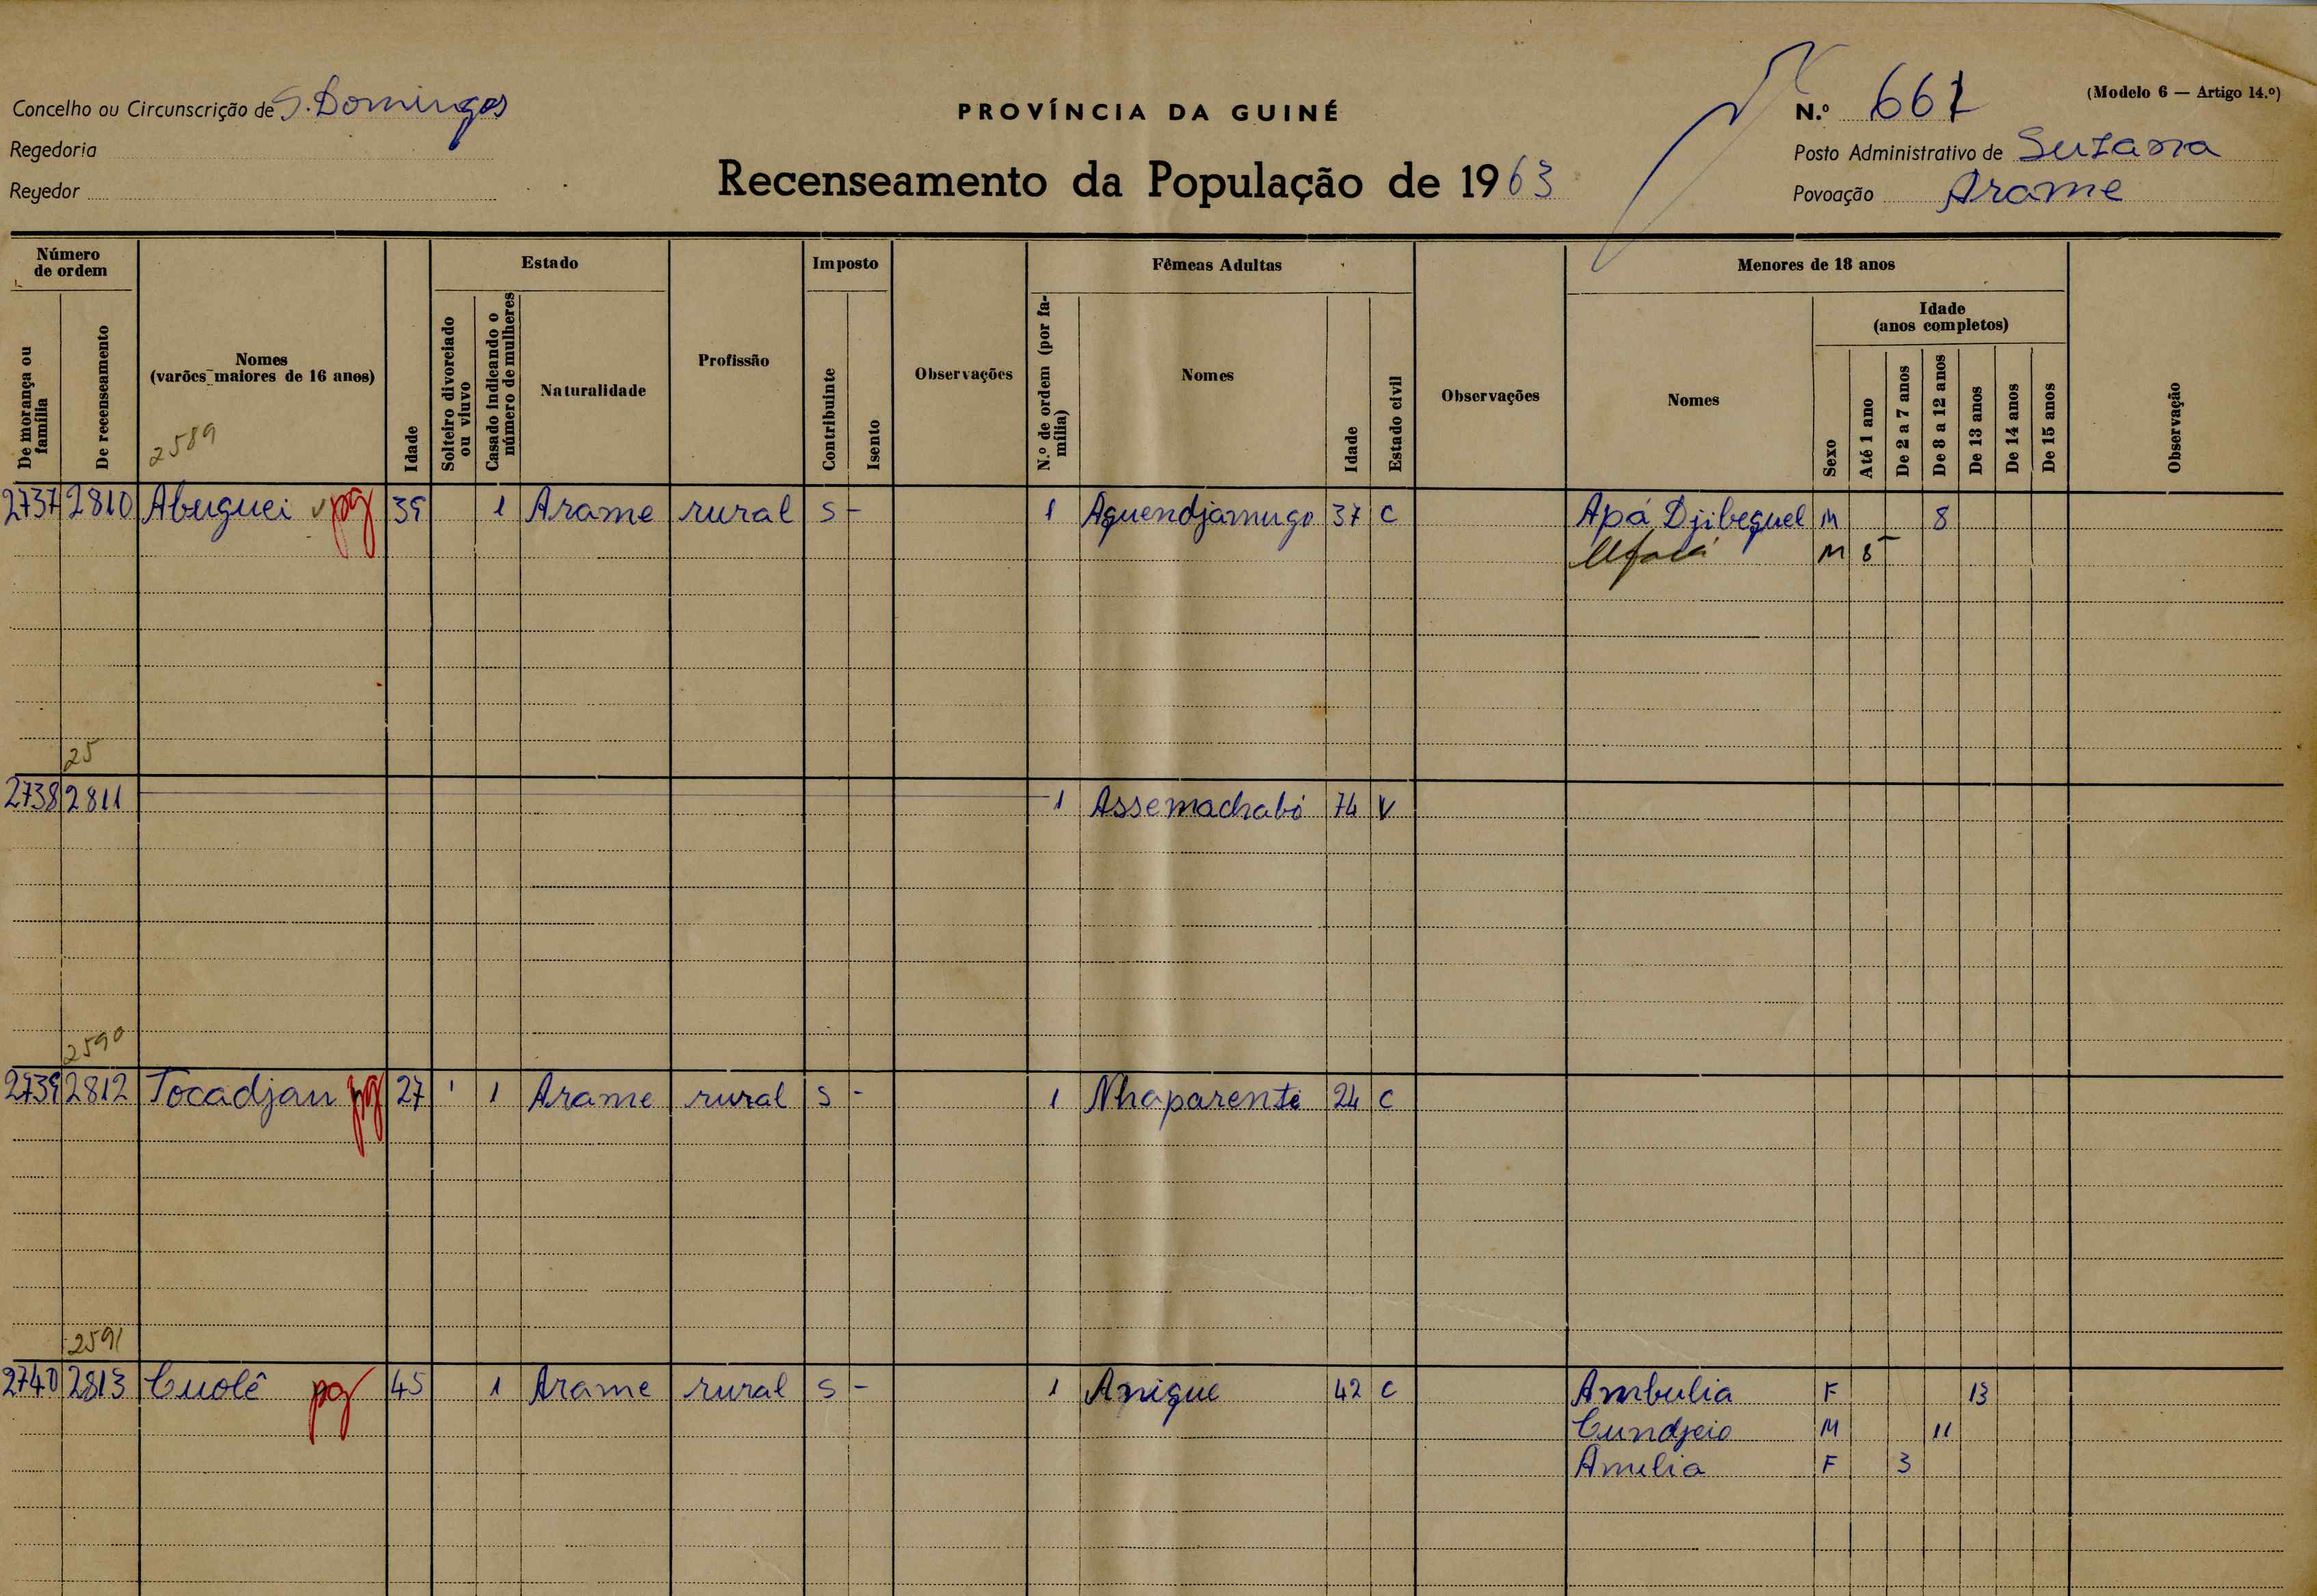 Concelho ou Circunscrição de S. Domingos
Regedoria
Regedor
PROVÍNCIA DA GUINÉ
Recenseamento da População de 1963
(Modelo 6 — Artigo 14.º)
N.º 661
Posto Administrativo de Suzana
Povoação Arame
Número de ordem
De morança ou família
De recenseamento
Nomes
(varões maiores de 16 anos)
2589
Idade
Estado
Solteiro divorciado ou viuvo
Casado indicando o número de mulheres
Naturalidade
Profissão
Imposto
Contribuinte
Isento
Observações
Fêmeas Adultas
N.º de ordem (por família)
Nomes
Idade
Estado civil
Observações
Menores de 18 anos
Nomes
Sexo
Idade
(anos completos)
Até 1 ano
De 2 a 7 anos
De 8 a 12 anos
De 13 anos
De 14 anos
De 15 anos
Observação
2737 2810 Abuguei pg 39 1 Arame rural S - 1 Aquendjamugo 37 C Apá Djibequel M 8
M 8
25
2738 2811 1 Assemachabó 74 V
2590
2739 2812 Tocadjau pg 27 1 1 Arame rural S - 1 Nhaparente 24 C
2591
2740 2813 Cuolê pg 45 1 Arame rural S - 1 Anique 42 C Ambulia F 13
Cundjeio M 11
Amelia F 3